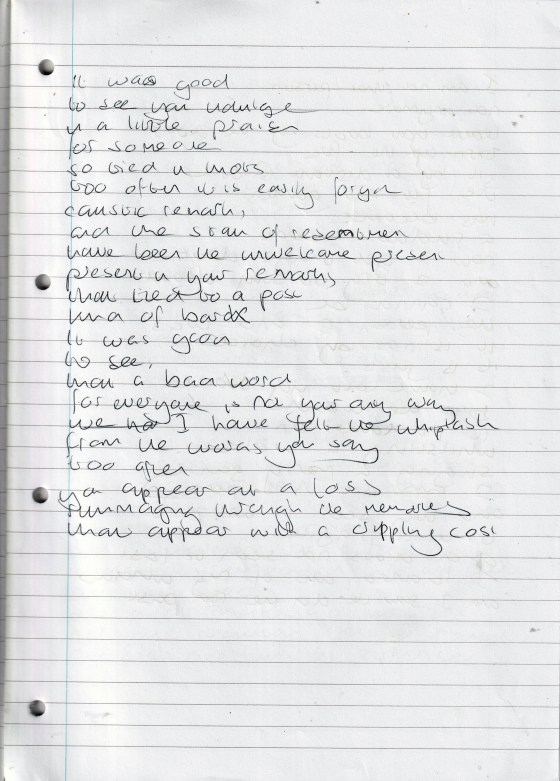 It was good
to see you indulge
in a little praise
for someone
so tied in
too often it is easily forgot
caustic remark,
and the stain of resentment
have been the unwelcome present
present in your remarks
that tied to a post
kind of
It was good
to see,
that a bad word
for everyone is not your only way
we no I have felt the whiplash
from the words you say
too often
you appear at a loss
rummaging through the memories
that appear with a crippling cost